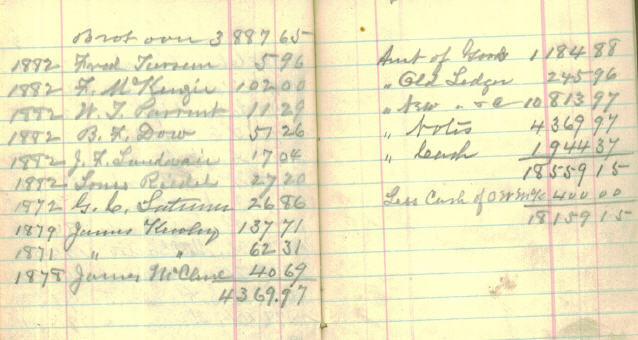 Brot over 3 887 65
1882 Fred 5 96
1882 F. McKenzie 102 00
1882 W. T. 11 29
1882 B. F. Dow 51 26
1882 J. F. 17 04
1882 27 20
1872 G. C. 26 86
1879 James 137 71
1871 " " 62 31
1878 James McClure 40 69
4369.97
Amt of Goods 1 184 88
" Old Ledger 245 96
" New " 10 813 97
" Notes 4 369 97
" Cash 1 944 37
18 559 15
Less Cash of 400 00
18 159 15